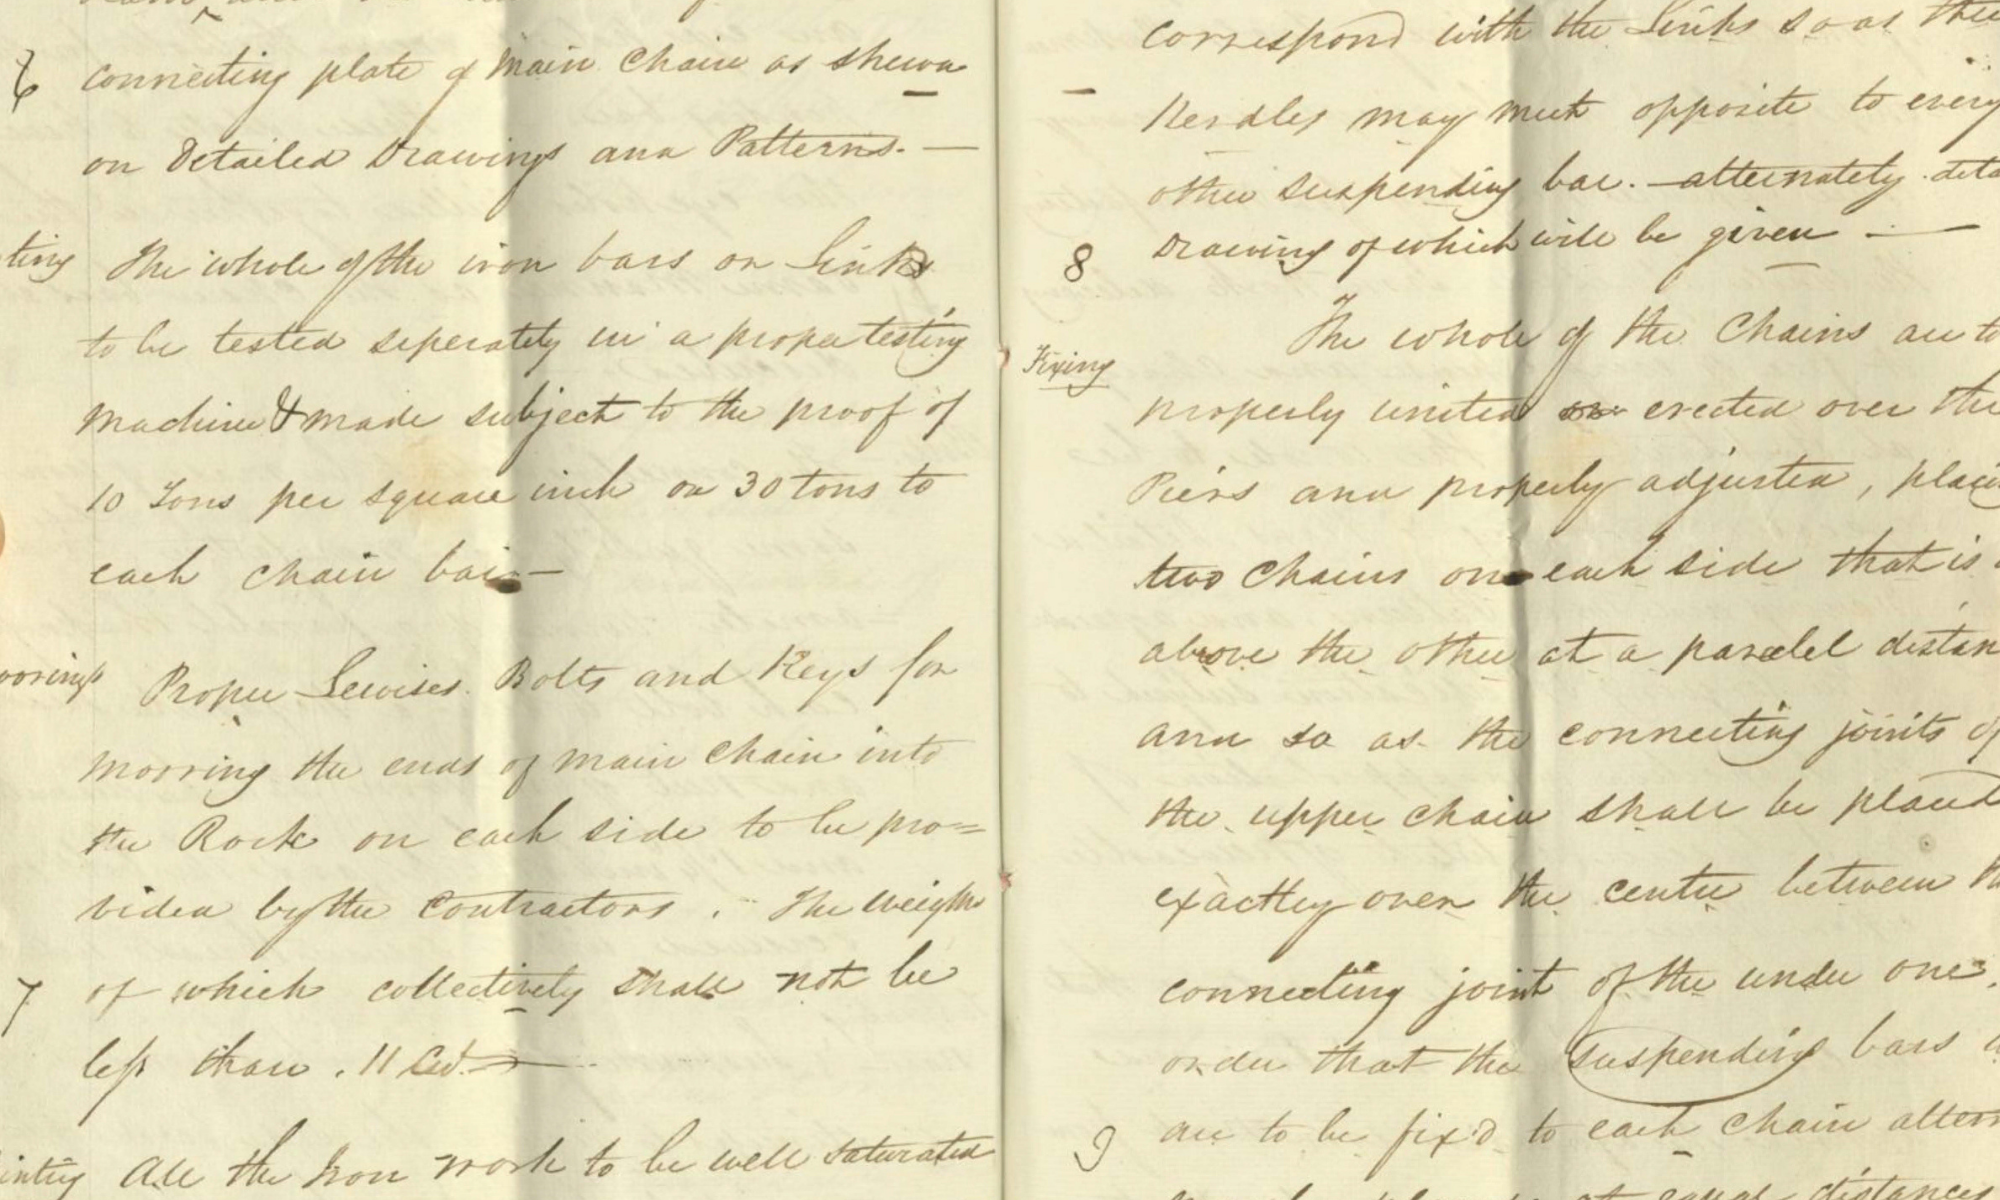 6 connecting plate of Main Chain as shewn
on Detailed Drawings and Patterns. —
ting The whole of the iron bars or Links
to be tested seperately in a proper testing
Machine & made subject to the proof of
10 Tons per square inch or 30 tons to
each chain bar —
oorings Proper Lewises. Bolts and Keys for
Morring the ends of main Chain into
the Rock on each side to be pro=
vided by the Contractors. The weight
7 of which collectively shall not be
less than. 11 Cwt. —
inting All the Iron work to be well saturated
correspond with the Links so as the
Needles may meet opposite to every
other suspending bar. — alternately. deta
8 Drawing of which will be given —
The whole of the Chains are to
Fixing
properly united erected over the
Piers and properly adjusted, placi
two Chains on each side that is
above the other at a paralel distan
and so as the connecting joints of
the upper chain shall be placed
exactley over the centre between th
connecting joint of the under one,
order that the suspending bars
9 are to be fix'd to each chain altern
at equal distances